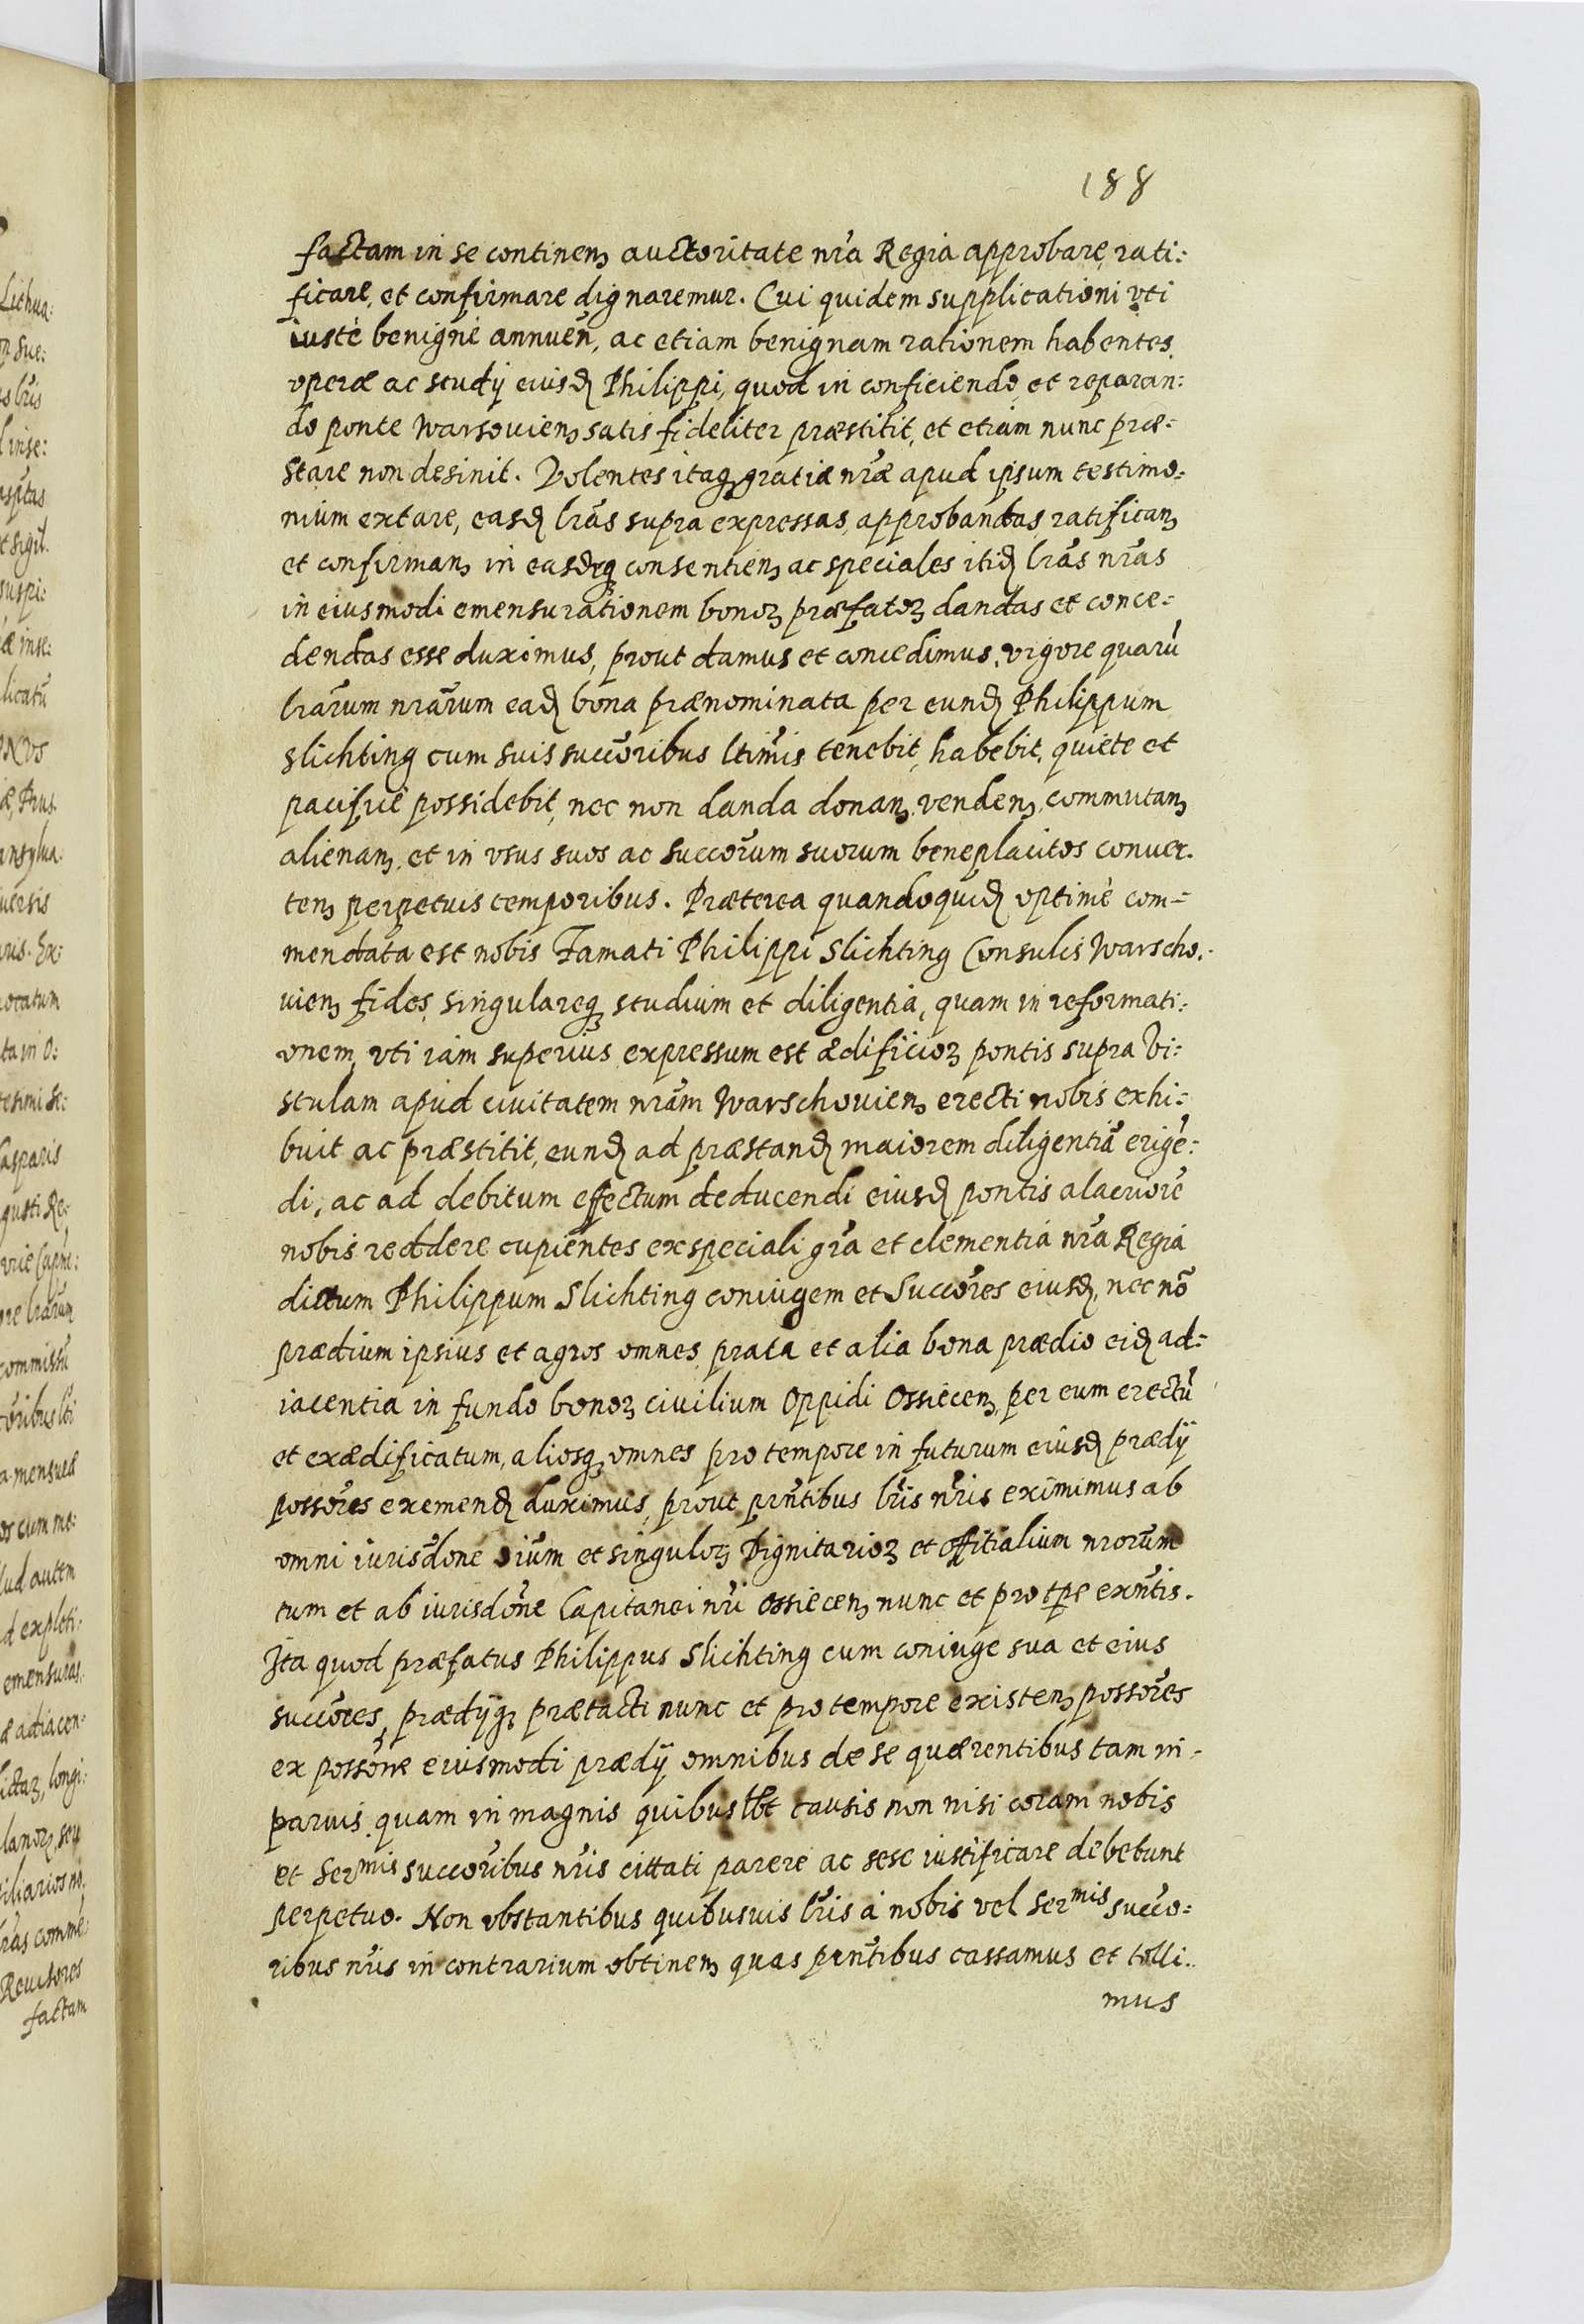 188
factam in se continenꝫ auctoritate nr̃a Regia approbare, rati:
ficare, et confirmare dignaremur. Cui quidem supplicationi vti
iustè benignè annueñ, ac etiam benignam rationem habentes
operæ ac studÿ eiusđ Philippi, quod in conficiendo et reparan:
do ponte Warsouienꝫ satis fideliter præstitit, et etiam nunc præ:
stare non desinit. Volentes itaqꝫ gratiæ nr̃æ apud ipsum testimo:
nium extare, easđ lr̃as supra expressas, approbandas, ratificanꝫ
et confirmanꝫ in easdeqꝫ consentienꝫ ac speciales itiđ lr̃as nr̃as
in eiusmodi emensurationem bonoꝝ præfatoꝝ dandas et conce:
dendas esse duximus, prout damus et concedimus. vigore quarũ
lr̃arum nr̃arum eađ bona prænominata per eunđ Philippum
Slichting cum suis succoribus ltimis tenebit, habebit, quiete et
pacificè possidebit, nec non danda donanꝫ, vendenꝫ, commutanꝫ
alienanꝫ, et in vsus suos ac succorum suorum beneplacitos conuer:
tenꝫ perpetuis temporibus. Præterea quandoquiđ optimè com=
mendata est nobis Famati Philippi Slichting Consulis Warscho:
uienꝫ fides, singulareqꝫ studium et diligentia, quam in reformati:
onem, vti iam superius expressum est ædificioꝝ pontis supra Vi:
stulam apud ciuitatem nr̃am Warschouienꝫ erecti nobis exhi:
buit ac præstitit, eunđ ad præstanđ maiorem diligentiã erigẽ:
di, ac ad debitum effectum deducendi eiusđ pontis alacriorẽ
nobis reddere cupientes ex speciali gr̃a et clementia nr̃a Regia
dictum Philippum Slichting coniugem et Succores eiusđ, nec nõ
prædium ipsius et agros omnes, prata et alia bona prædio eiđ ad=
iacentia in fundo bonoꝝ ciuilium Oppidi Ossiecenꝫ, per eum erectũ
et exædificatum, aliosqꝫ omnes pro tempore in futurum eiusđ prædÿ
possores exemenđ duximus, prout prñtibus lr̃is nr̃is eximimus ab
omni iurisdone oium et singuloꝝ Dignitarioꝝ et offitialium nrorum
tum et ab iurisdone Capitanei nr̃i Ossiecenꝫ nunc et pro tpe exñtis.
Ita quod præfatus Philippus Slichting cum coniuge sua et eius
succores, prædÿqꝫ prætacti nunc et pro tempore existenꝫ possores
ex possone eiusmodi prædÿ omnibus de se quærentibus tam in
paruis quam in magnis quibuslbt causis non nisi coram nobis
et Sermis succoribus nr̃is cittati parere ac sese iustificare debebunt
perpetuo. Non obstantibus quibusuis lr̃is à nobis vel Sermis succo:
ribus nr̃is in contrarium obtinenꝫ quas prñtibus cassamus et tolli:
mus